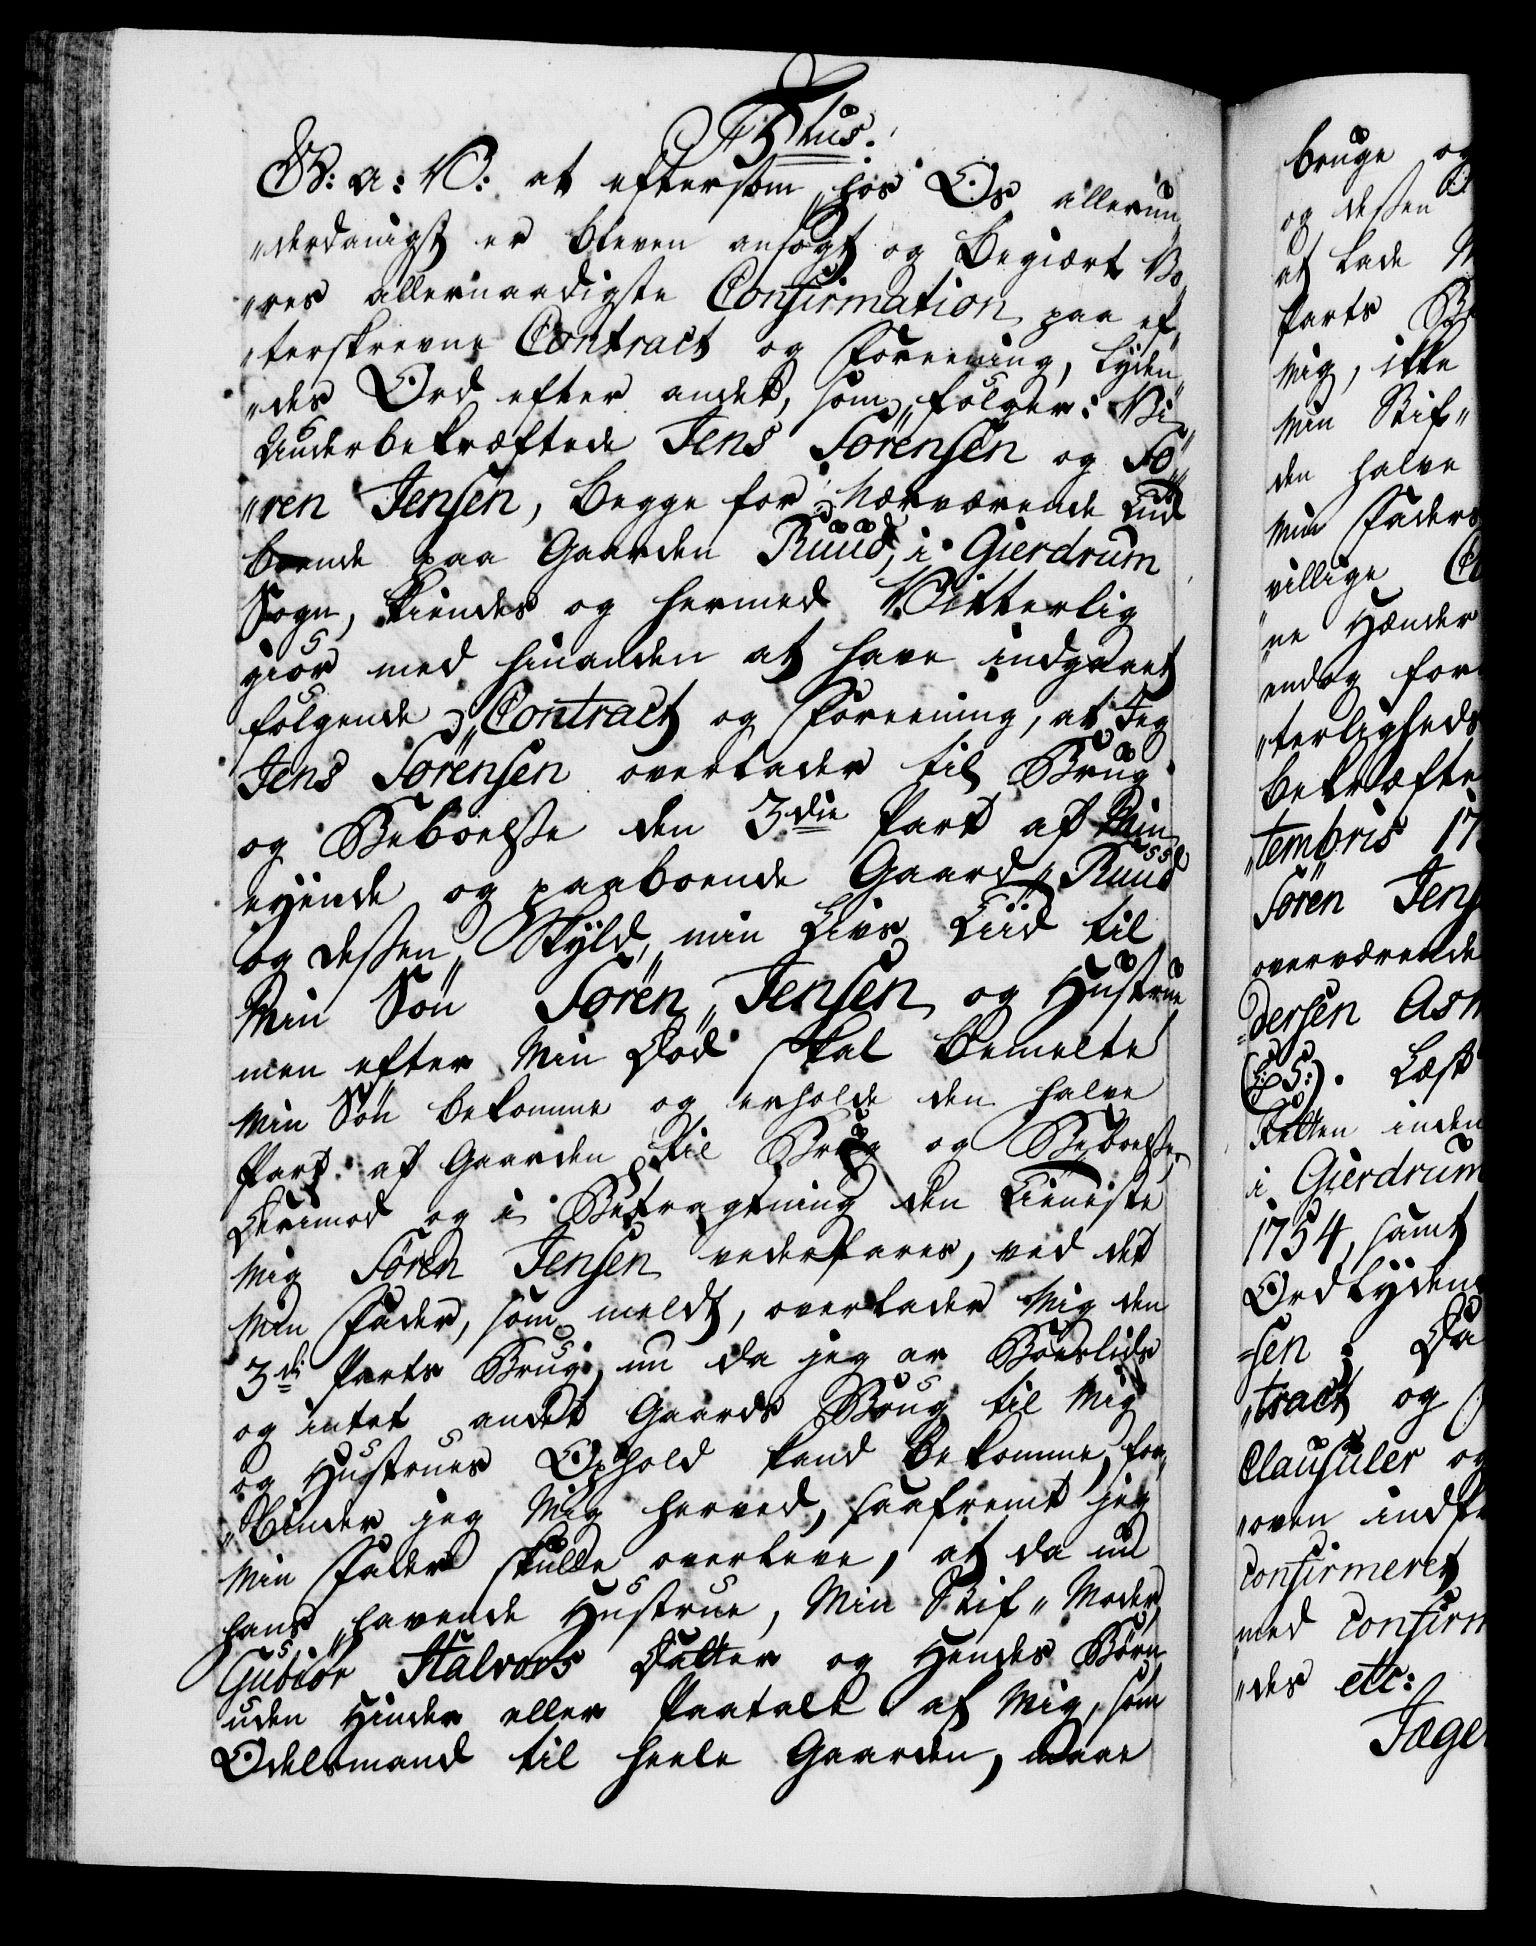 F5tus.
G: A: V: at eftersom hos Os allerun„
„derdanigst er bleven ansøgt og begiært Vo„
„res allernaadigste Confirmation paa ef„
„terskrevne Contract og Foreening, lyden„
„des Ord efter andet, som følger: Vi
Underbekræftede Jens Sörensen og Sö„
„ren Jensen, begge for nærværende Tid
boende paa Gaarden Ruud, i Gierdrum
Sogn, kiendes og hermed Vitterlig
giør med hinanden at have indgaaet
følgende Contract og Foreening, at Jeg
Jens Sörensen overlader til Brug
og Beboelse den 3die Part af Min
eyende og paaboende Gaard Ruud
og dessen Skyld, min Livs Tiid til
Min Søn Sören Jensen og Hustrue
men efter Min Død skal bemelte
Min Søn bekomme og erholde den halve
Part af Gaarden til Brug og Beboelse
Derimod og i Betragtning den Tieniste
Mig Sören Jensen vederfares, ved det
Min Fader, som meldt, overlader Mig den
3di Parts Brug, nu da jeg er Boeslids
og intet andet Gaards Brug til Mig
og Hustrues Ophold kand bekomme, for„
„binder jeg Mig herved, saafremt jeg
Min Fader skulde overleve, at da nu
hans havende Hustrue, Min Stif„Moder
Gubiör Halvors Datter og Hendes Børn
uden Hinder eller Paatale af Mig, som
Odelsmand til heele Gaarden, maae
bruge og
og dessen
at lade
Parts
Mig, ikke
Min Stif„
den halve
Min Faders
villige
„ne Hænder
endog for
„terligheds
bekræfte
„tembris 17
Sören Jens
overværende
„dersen Asm
(L: S:). Læst
Retten inden
i Gierdrum
1754, samt
Ord lyden
„sen: Da
„tract og
Clausuler og
„oven indf
confirmeret
med confirm
„des etc:
Jæge